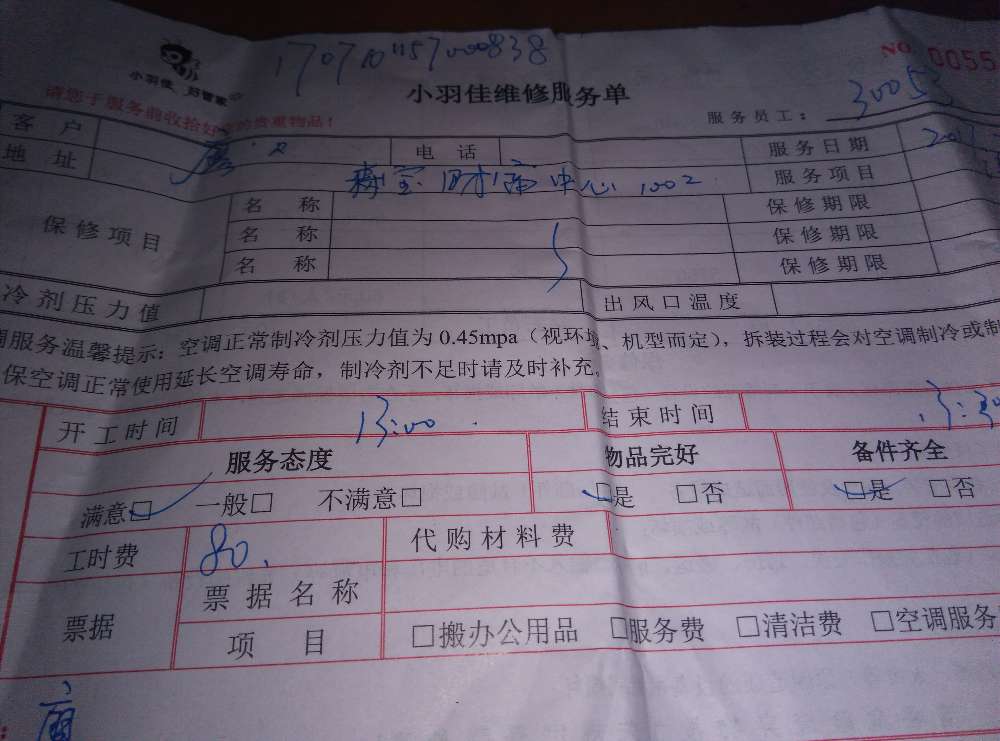 1707101157000838
NO 0055
小羽佳 好管家
小羽佳维修服务单
请您于服务前收拾好您的贵重物品!
服务员工: 30053
客户 电话 服务日期
地址 财富中心1002 服务项目
保修项目 名称 保修期限
名称 保修期限
名称 保修期限
冷剂压力值 出风口温度
调服务温馨提示:空调正常制冷剂压力值为 0.45mpa(视环境、机型而定),拆装过程会对空调制冷或制
保空调正常使用延长空调寿命,制冷剂不足时请及时补充。
开工时间 13:00 结束时间 13:30
服务态度 物品完好 备件齐全
满意□ 一般□ 不满意□ □是 □否 □是 □否
工时费 80. 代购材料费
票据 票据名称
项目 □搬办公用品 □服务费 □清洁费 □空调服务